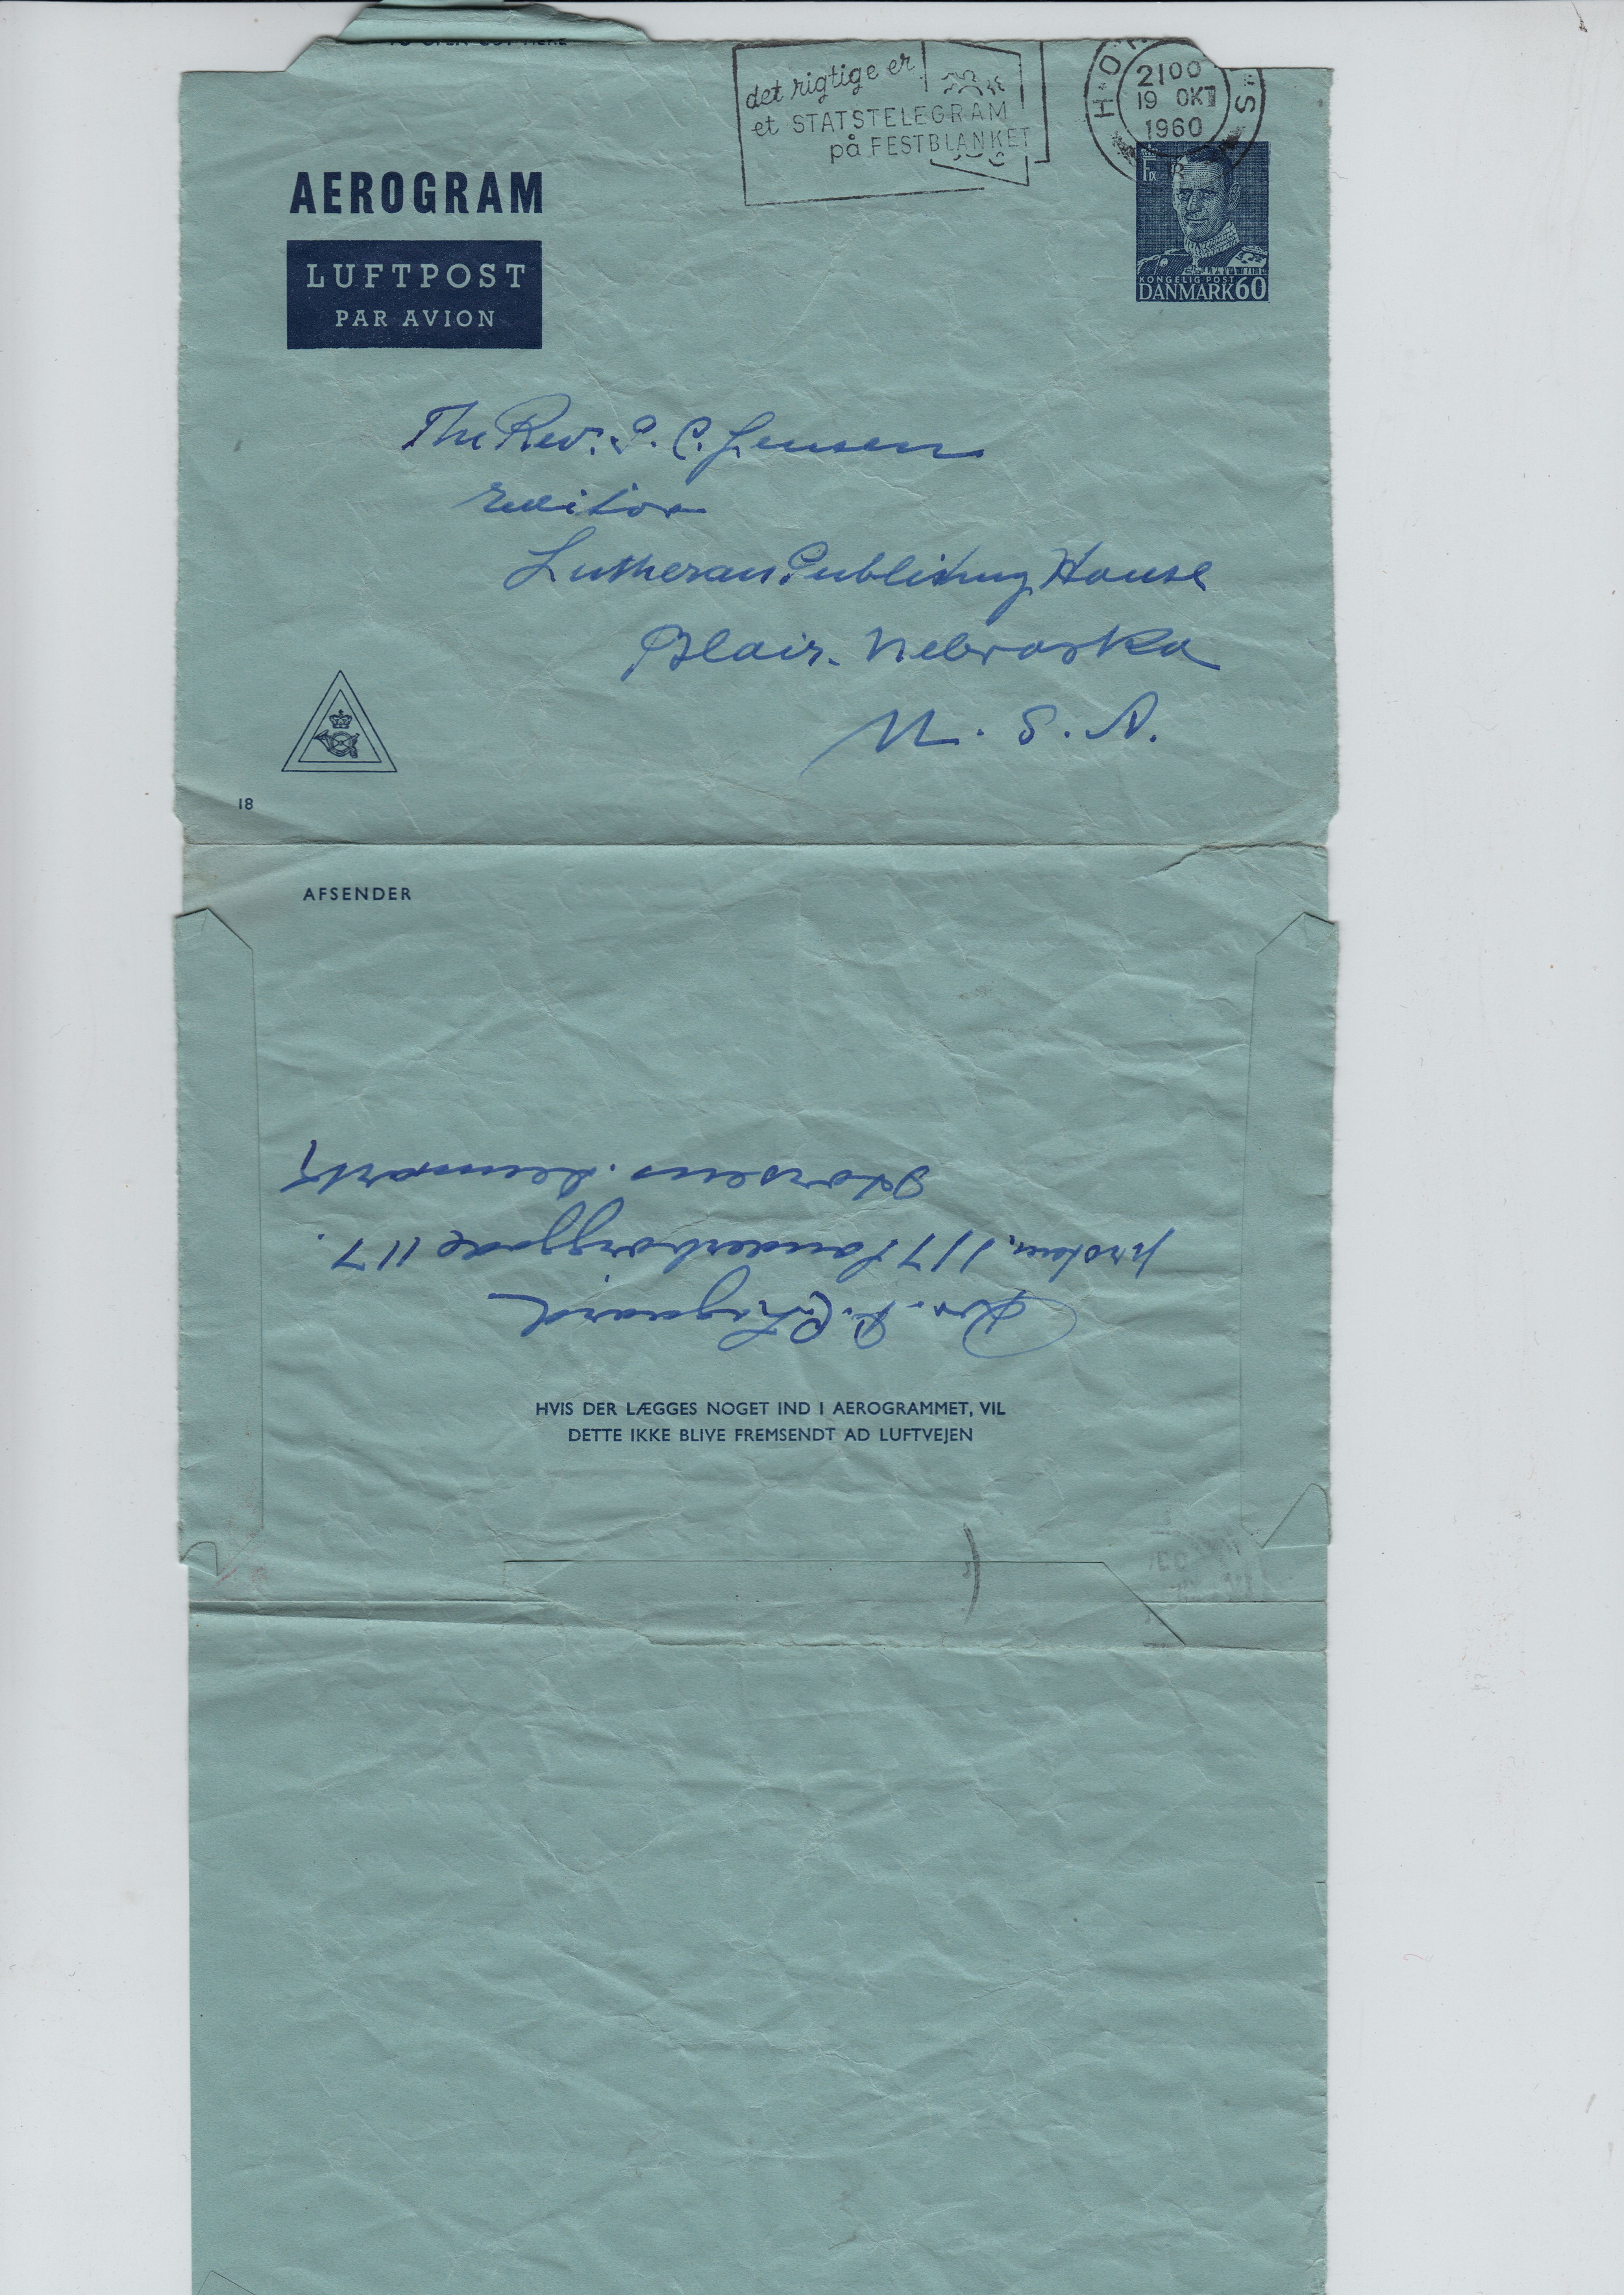 det rigtige er
et STATSTELEGRAM
på FESTBLANKET
2100
19 OKT
1960
AEROGRAM
LUFTPOST
PAR AVION
KONGELIG POST
DANMARK 60
The Rev. P. C. Jensen
Editor
Lutheran Publishing House
Blair. Nebraska
U. S. A.
18
AFSENDER
117
Horsens. Denmark
HVIS DER LÆGGES NOGET IND I AEROGRAMMET, VIL
DETTE IKKE BLIVE FREMSENDT AD LUFTVEJEN